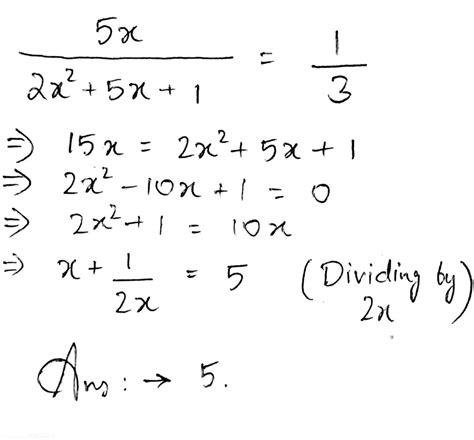 5x / (2x² + 5x + 1) = 1/3
⇒ 15x = 2x² + 5x + 1
⇒ 2x² - 10x + 1 = 0
⇒ 2x² + 1 = 10x
⇒ x + 1/2x = 5 (Dividing by 2x)
Ans : → 5.